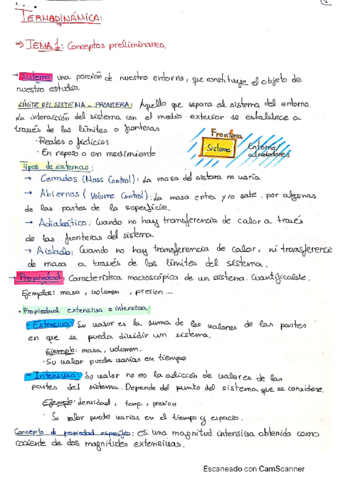 TERMODINÁMICA:
⇒ TEMA 1: Conceptos preliminares.
→ Sistema: una porción de nuestro entorno, que constituye el objeto de
nuestro estudio.
LÍMITE DEL SISTEMA - FRONTERA: Aquello que separa al sistema del entorno.
La interacción del sistema con el medio exterior se establece a
través de los límites o fronteras
· Reales o ficticios
· En reposo o en movimiento
Frontera
Sistema
Entorno
alrededores
Tipos de sistemas:
→ Cerrados (Mass Control): La masa del sistema no varía
→ Abiertos (Volume Control): La masa entra y/o sale por algunas
de las partes de la superficie.
→ Adiabático: Cuando no hay transferencia de calor a través
de las fronteras del sistema
→ Aislado: Cuando no hay transferencia de calor, ni transferencia
de masa a través de los límites del sistema.
→ Propiedad: Característica macroscópica de un sistema. Cuantificable.
Ejemplos: masa, volumen, presion...
· Propiedad extensiva o intensiva
- Extensiva: Su valor es la suma de los valores de las partes
en que se pueda dividir un sistema.
Ejemplo: masa, volumen.
· Su valor puede varias en tiempo
- Intensiva: Su valor no es la adición de valores de las
partes del sistema. Depende del punto del sistema que se considere.
Ejemplo: densidad, temp, presion
· Su valor puede varias en el tiempo y espacio.
Concepto de propiedad específica: es una magnitud intensiva obtenida como
cociente de dos magnitudes extensivas.
Escaneado con CamScanner